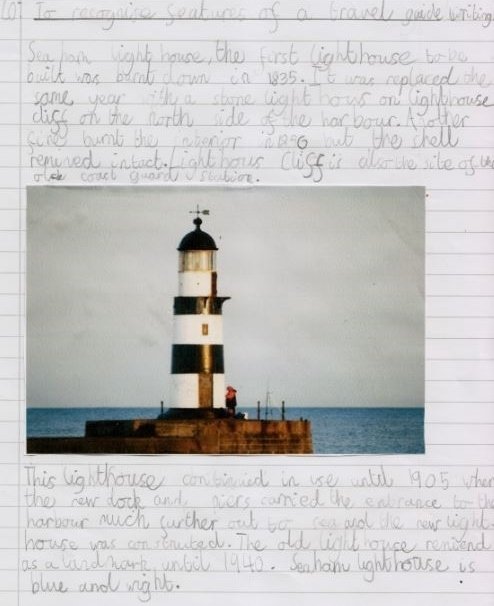 LO To recognise features of a travel guide writing
Seaham light house, the first lighthouse to be
built was burnt down in 1835. It was replaced the
same year with a stone light hous on lighthouse
cliff on the north side of the harbour. Another
fire burnt the interior in 1896 but the shell
remined intact. Light hous Cliff is also the site of the
old coast guard station.
This lighthouse continued in use until 1905 when
the new dock and piers carried the entrance to the
harbour much further out to sea and the new light-
house was constructed. The old light house remiend
as a landmark until 1940. Seaham lighthouse is
blue and wight.